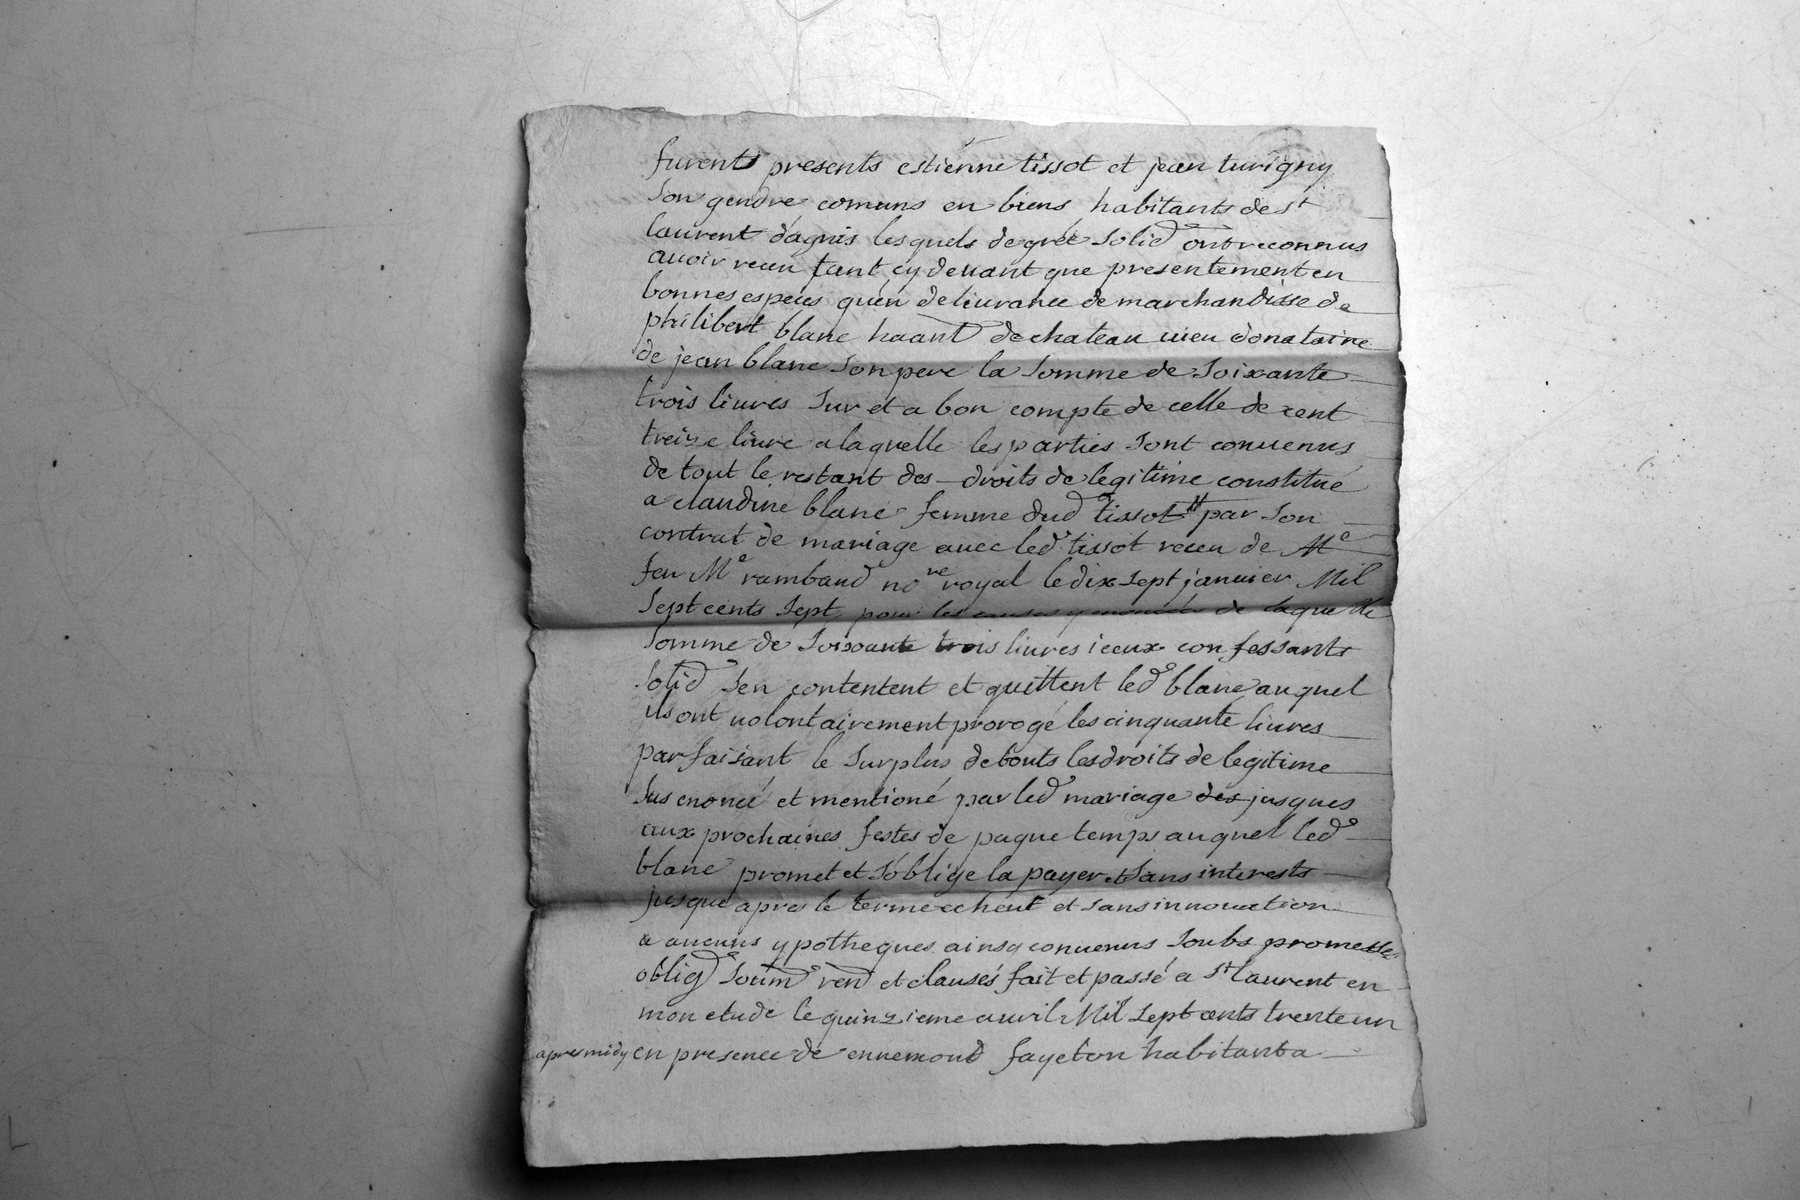 furent presents estienne tissot et jean turigny
son gendre comuns en biens habitants de st
laurent d'agnis lesquels de gréé solid ont reconnus
avoir receu tant cy devant que presentement en
bonnes especes qu'en delivrance de marchandisse de
philibert blanc haant de chateau vieu donataire
de jean blanc son pere la somme de soixante
trois livres sur et a bon compte de celle de cent
treize livre a laquelle les parties sont convenus
de tout le restant des droits de legitime constitué
a claudine blanc femme dud tissot par son
contrat de mariage avec led tissot receu de Me
feu Me rambaud nore royal le dix sept janvier Mil
sept cents sept pour les causes y de laquelle
somme de soixante trois livres iceux confessants
solid s'en contentent et quittent led blanc auquel
ils ont volontairement prorogé les cinquante livres
parfaisant le surplus de touts les droits de legitime
sus enoncé et mentioné par led mariage des jusques
aux prochaines festes de paque temps auquel led
blanc promet et s'oblige la payer et sans interests
jusque apres le terme echeut et sans innovation
a aucuns ypotheques ainsy convenus soubs promesses
oblig soum ren et clauses fait et passé a st laurent en
mon etude le quinzieme avril Mil sept cents trente un
apres midy en presence de ennemond fayeton habitant a